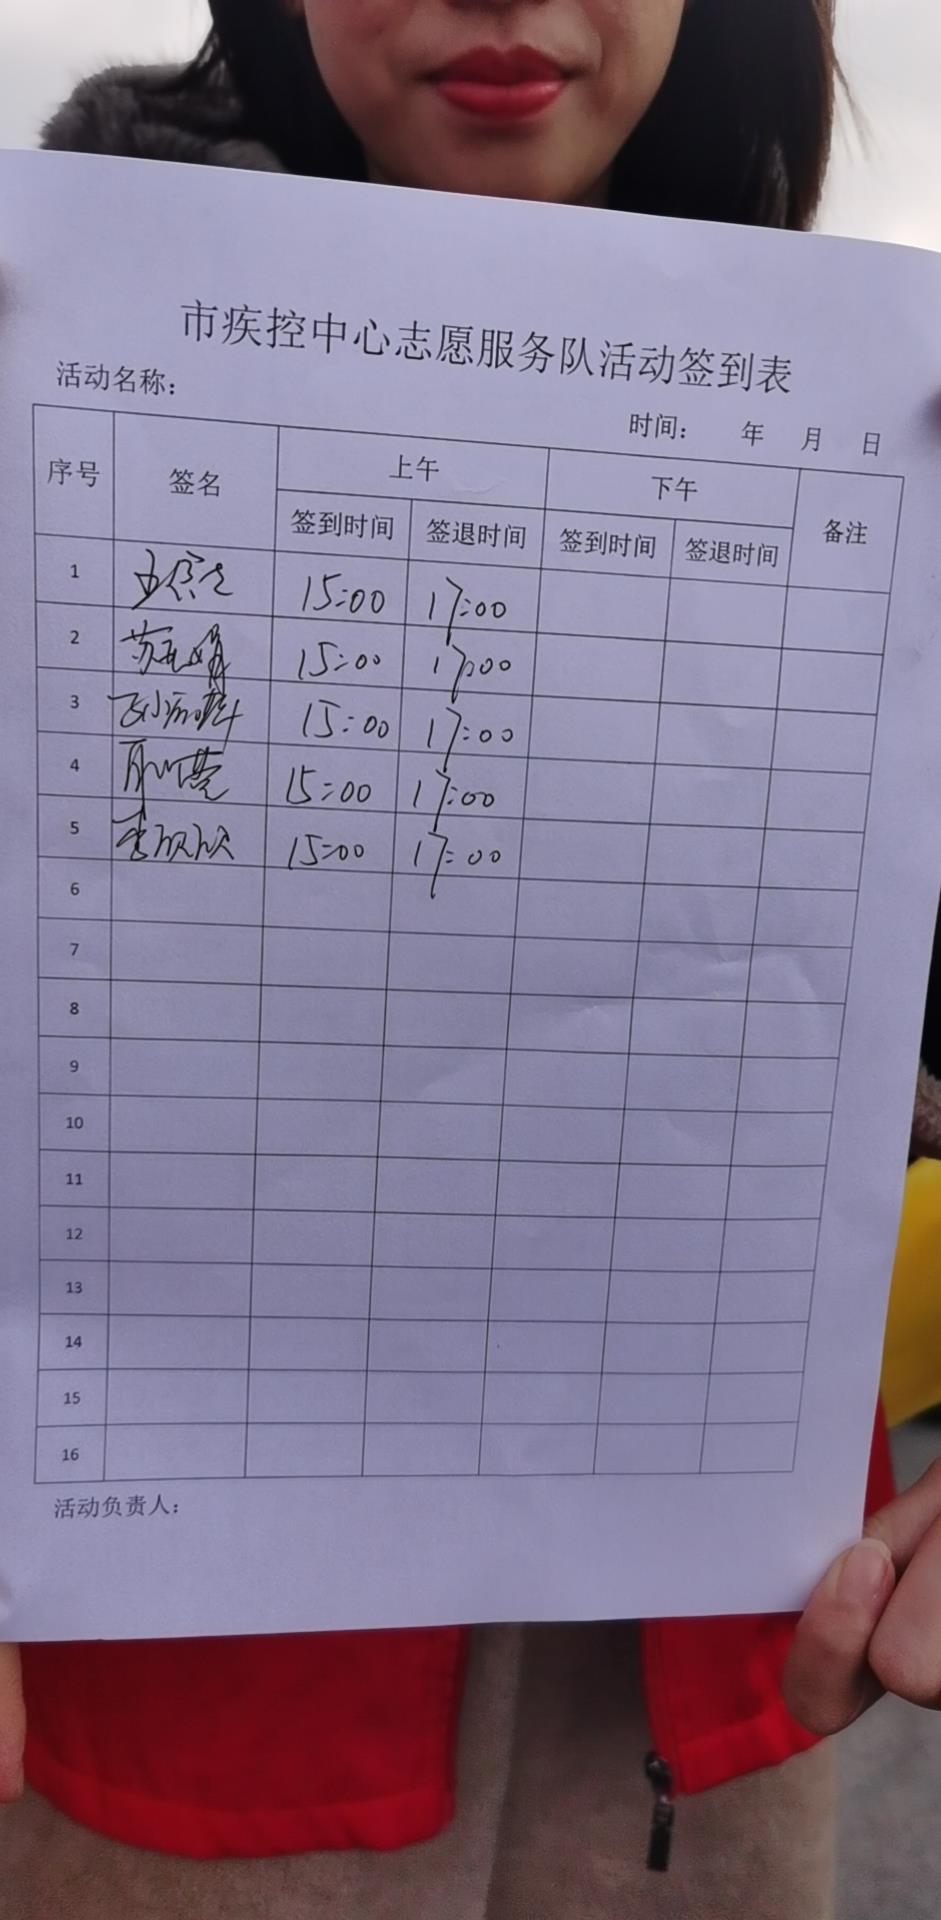 市疾控中心志愿服务队活动签到表
活动名称：
时间： 年 月 日
序号 签名 上午 下午 备注
签到时间 签退时间 签到时间 签退时间
1 15:00 17:00
2 15:00 17:00
3 15:00 17:00
4 15:00 17:00
5 李欣欣 15:00 17:00
6
7
8
9
10
11
12
13
14
15
16
活动负责人：